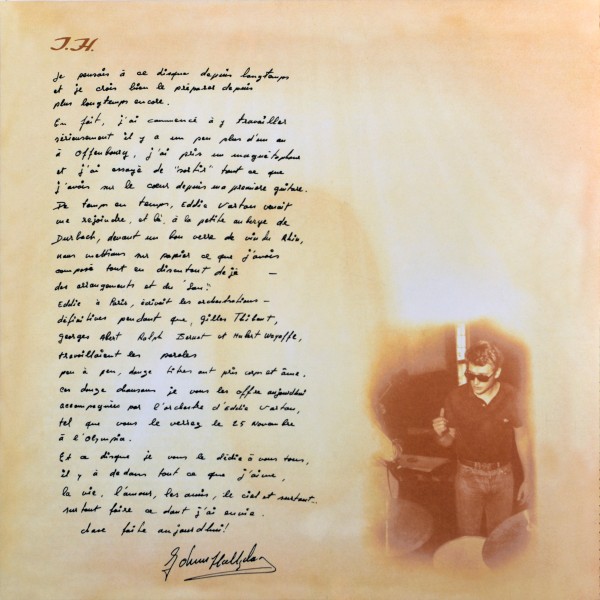 J.H.
Je pensais à ce disque depuis longtemps
et je crois bien le préparer depuis
plus longtemps encore.
En fait, j'ai commencé à y travailler
sérieusement il y a un peu plus d'un an
à Offenbourg, j'ai pris un magnétophone
et j'ai essayé de "sortir" tout ce que
j'avais sur le cœur depuis ma première guitare.
De temps en temps, Eddie Vartan venait
me rejoindre, et là, à la petite auberge de
Durbach, devant un bon verre de vin du Rhin,
nous mettions sur papier ce que j'avais
composé tout en discutant déjà —
des arrangements et du "son".
Eddie à Paris, écrivait les orchestrations —
définitives pendant que, Gilles Thibaut,
Georges Aber Ralph Bernet et Hubert
travaillaient les paroles
peu à peu, douze titres ont pris corps et âme,
ces douze chansons je vous les offre aujourd'hui
accompagnées par l'orchestre d'Eddie Vartan,
tel que vous le verrez le 25 Novembre
à l'Olympia.
Et ce disque je vous le dédie à vous tous,
il y à dedans tout ce que j'aime,
la vie, l'amour, les amis, le ciel et surtout..
surtout faire ce dont j'ai envie.
chose faite aujourd'hui!
Johnny Hallyday